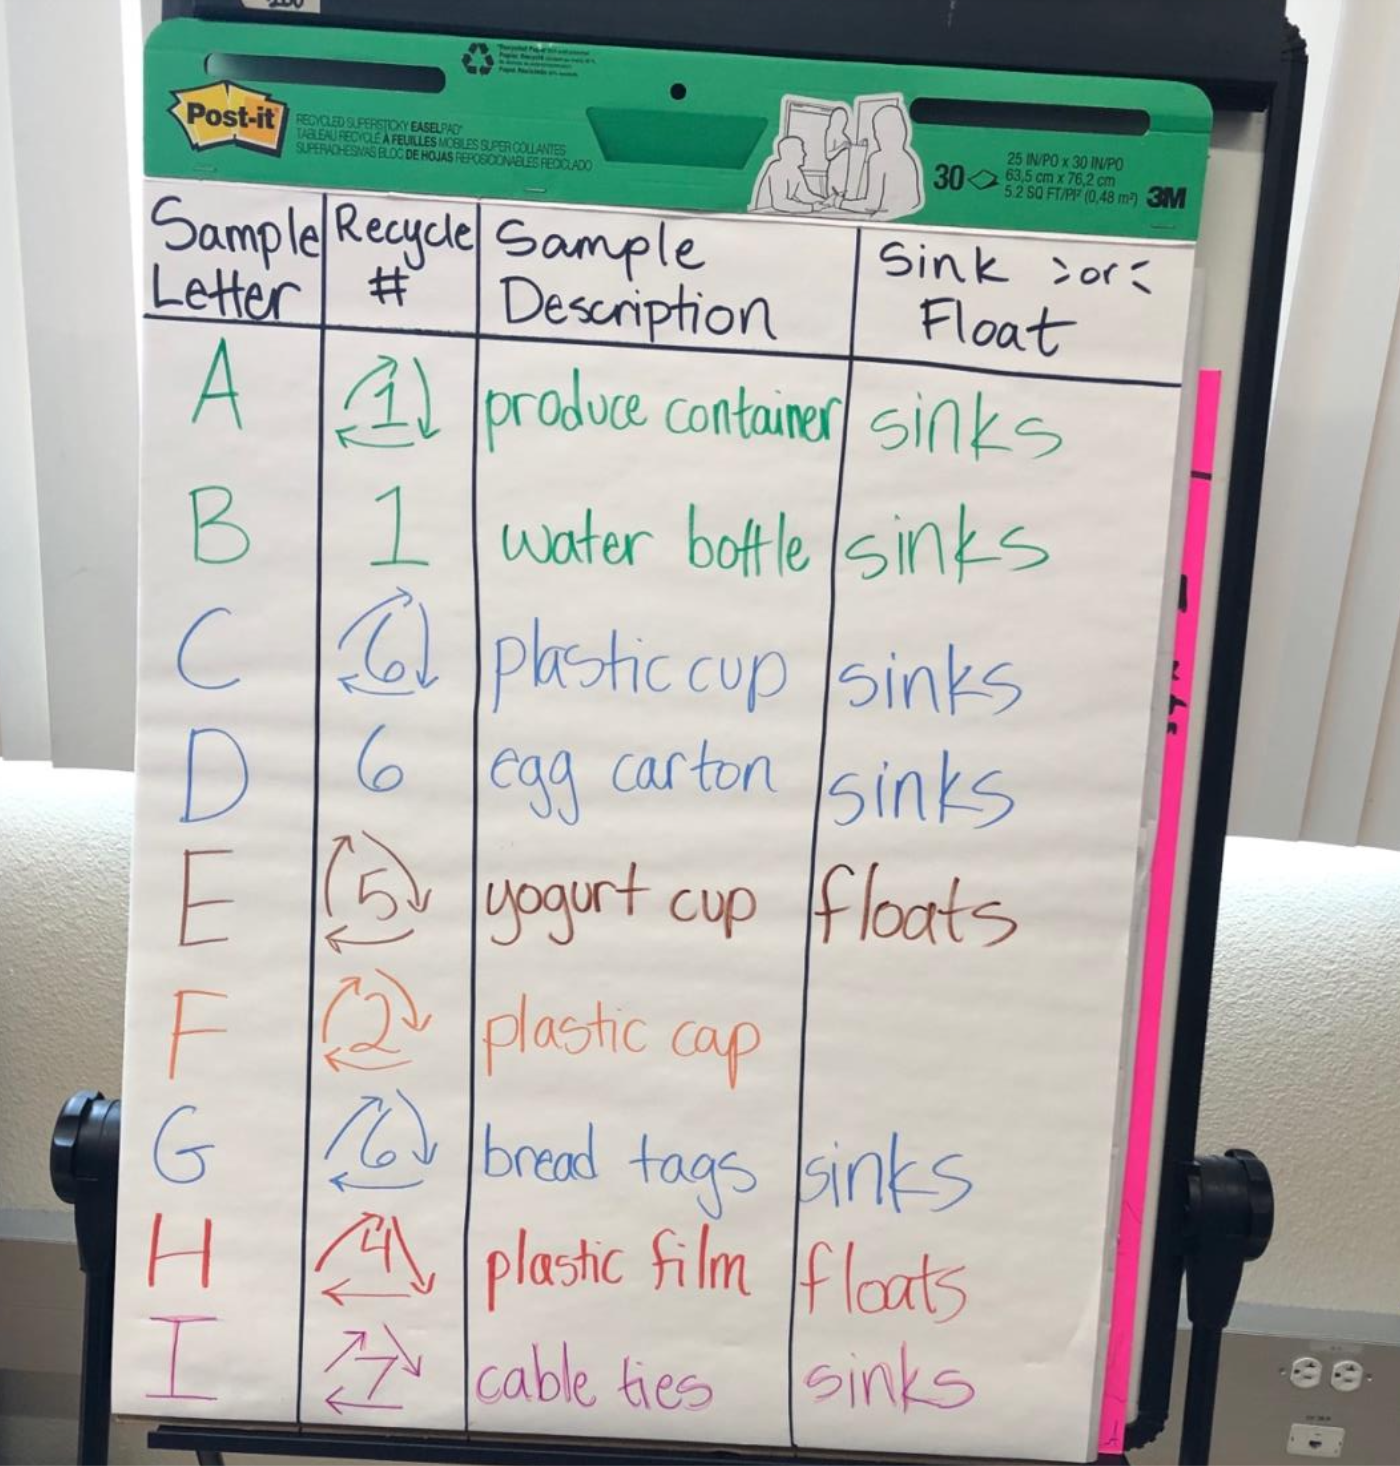 Post-it
RECYCLED SUPERSTICKY EASEL PAD
TABLEAU RECYCLÉ À FEUILLES MOBILES SUPER COLLANTES
SUPERADHESIVAS BLOC DE HOJAS REPOSICIONABLES RECICLADO
30
25 IN/PO x 30 IN/PO
63,5 cm x 76,2 cm
5.2 SQ FT/PI² (0,48 m²)
3M
Sample Letter | Recycle # | Sample Description | Sink >or< Float
A 1 produce container sinks
B 1 water bottle sinks
C 6 plastic cup sinks
D 6 egg carton sinks
E 5 yogurt cup floats
F 2 plastic cap
G 6 bread tags sinks
H 4 plastic film floats
I 7 cable ties sinks